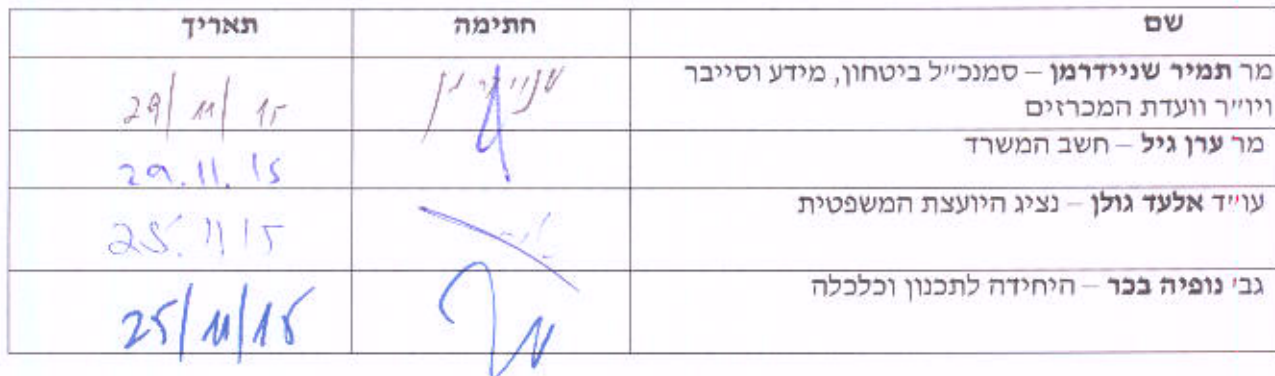 שם חתימה תאריך
מר תמיר שניידרמן – סמנכ״ל ביטחון, מידע וסייבר 29/11/15
ויו״ר וועדת המכרזים
מר ערן גיל – חשב המשרד 29.11.15
עו״ד אלעד גולן – נציג היועצת המשפטית 25.11.15
גב׳ נופיה בכר – היחידה לתכנון וכלכלה 25/11/15